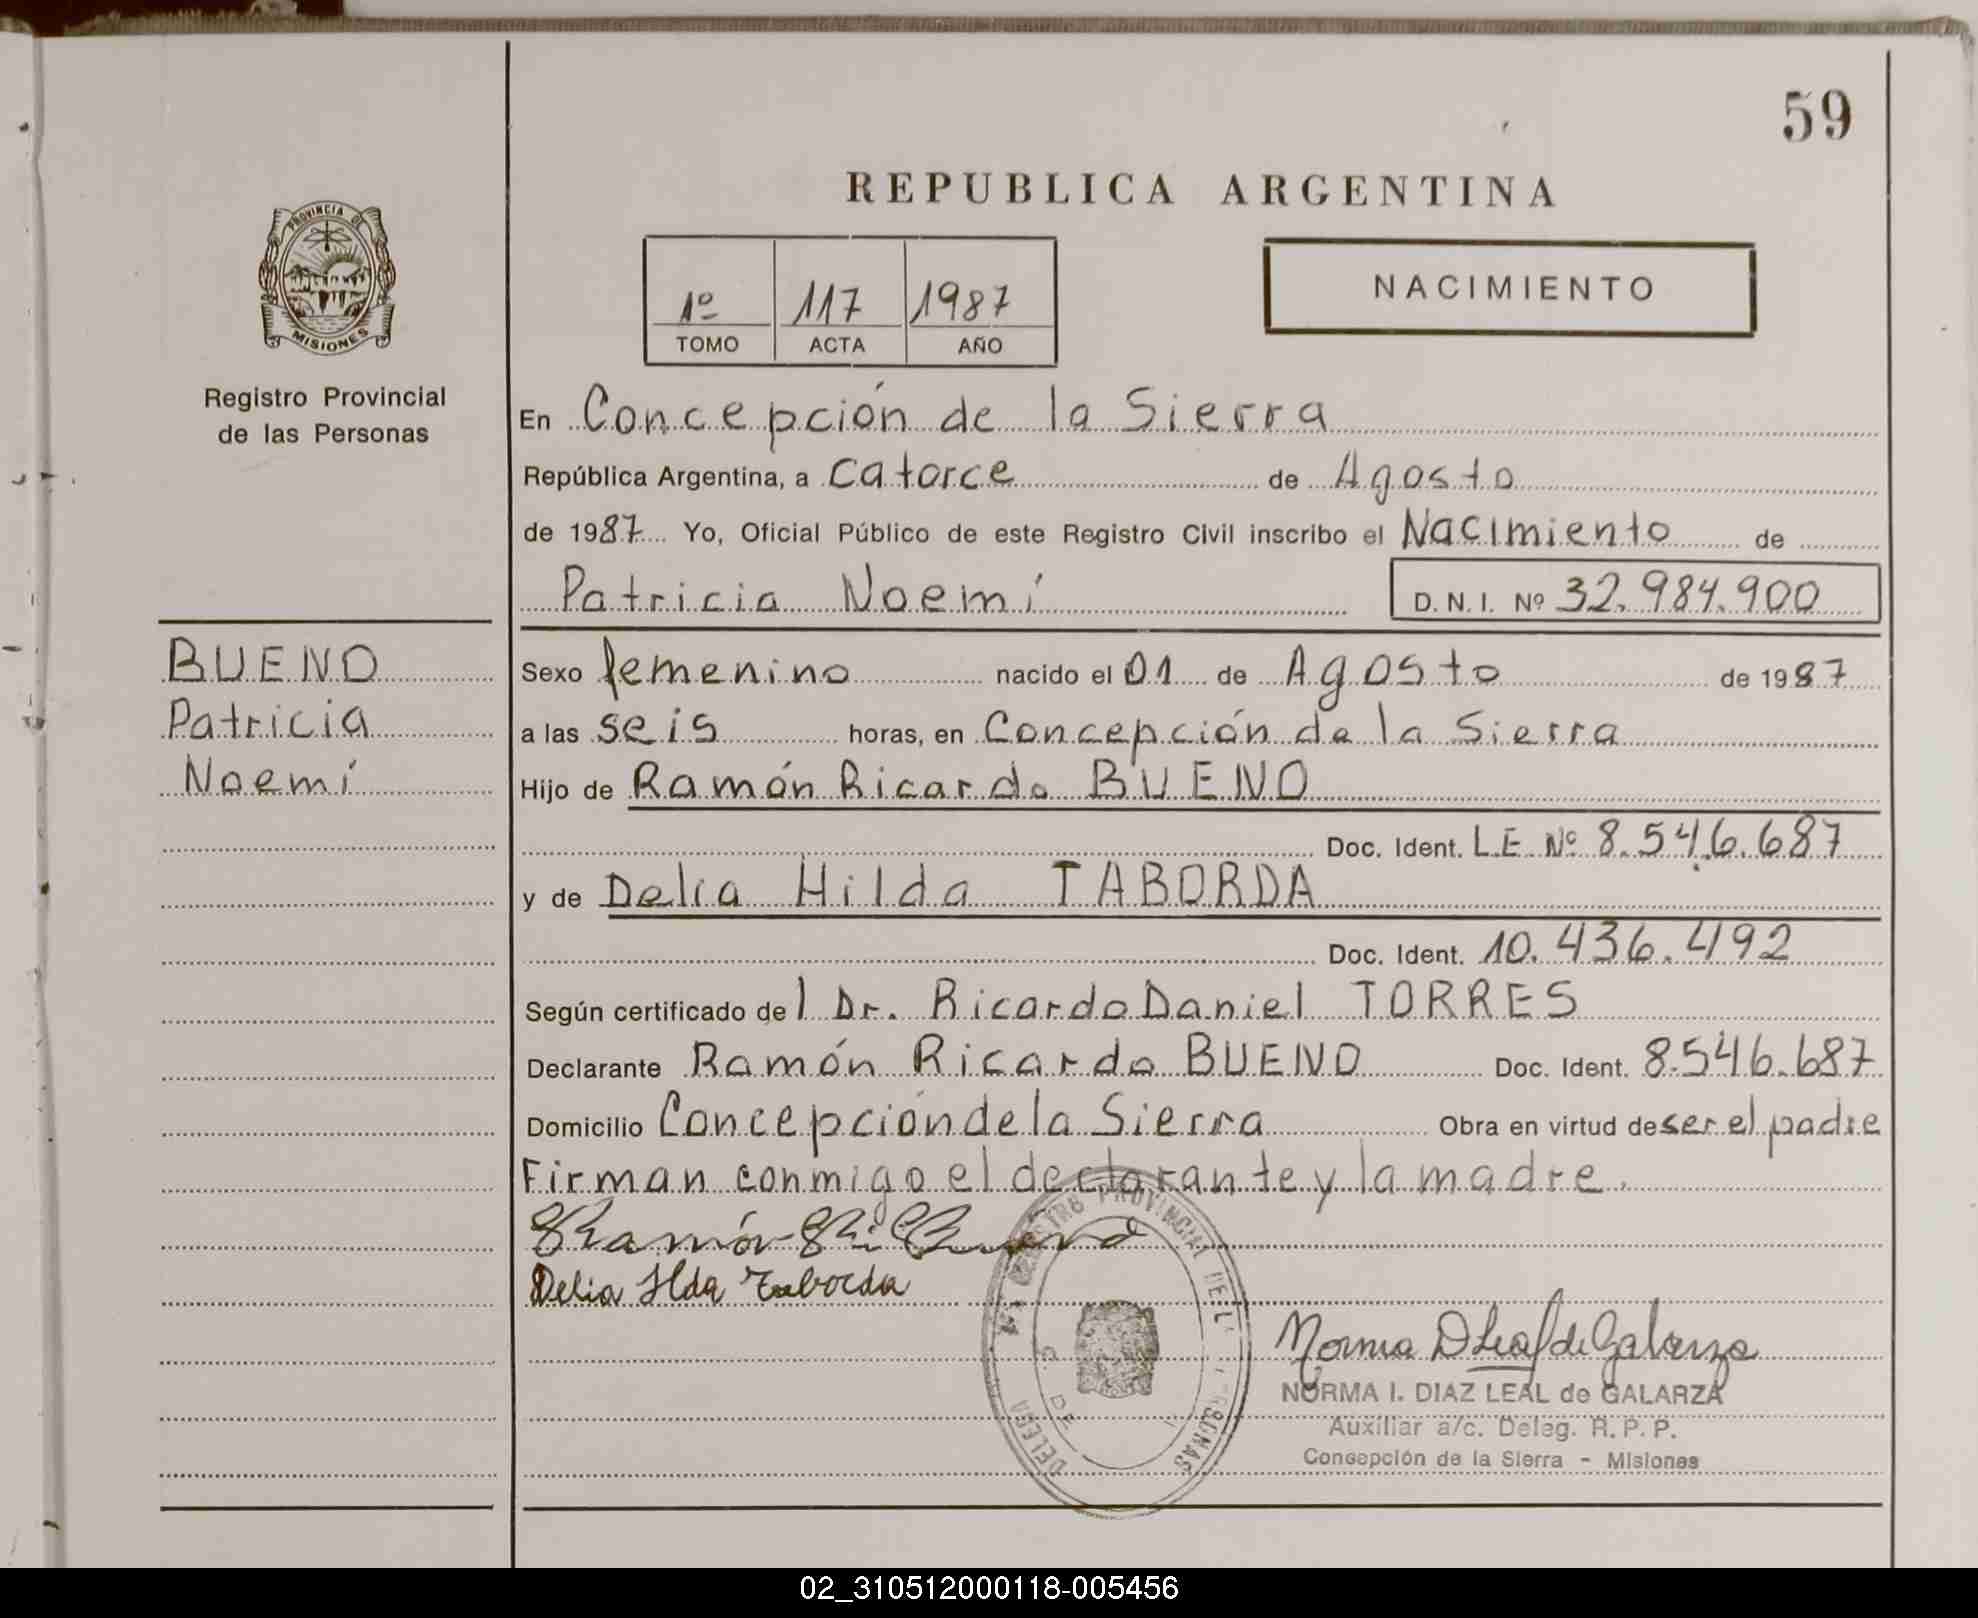 59
REPUBLICA ARGENTINA
PROVINCIA DE
MISIONES
Registro Provincial
de las Personas
1º 117 1987
TOMO ACTA AÑO
NACIMIENTO
En Concepción de la Sierra
República Argentina, a catorce de Agosto
de 1987 Yo, Oficial Público de este Registro Civil inscribo el Nacimiento de
Patricia Noemí D. N. I. Nº 32.984.900
BUENO
Patricia
Noemí
Sexo femenino nacido el 01 de Agosto de 1987
a las seis horas, en Concepción de la Sierra
Hijo de Ramón Ricardo BUENO
Doc. Ident. L.E. Nº 8.546.687
y de Delia Hilda TABORDA
Doc. Ident. 10.436.492
Según certificado del Dr. Ricardo Daniel TORRES
Declarante Ramón Ricardo BUENO Doc. Ident. 8.546.687
Domicilio Concepción de la Sierra Obra en virtud de ser el padre
Firman conmigo el declarante y la madre.
Ramón
Delia Ilda Taborda
REGISTRO PROVINCIAL DE L
DELEG
NORMA I. DIAZ LEAL de GALARZA
Auxiliar a/c. Deleg. R. P. P.
Concepción de la Sierra - Misiones
02_310512000118-005456